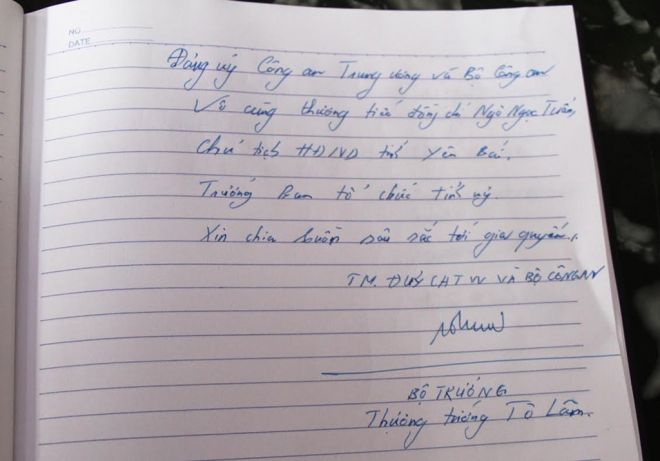 NO
DATE
Đảng uỷ Công an Trung ương và Bộ Công an
Vô cùng thương tiếc đồng chí Ngô Ngọc Tuấn,
Chủ tịch HĐND tỉnh Yên Bái,
Trưởng ban tổ chức tỉnh uỷ.
Xin chia buồn sâu sắc tới gia quyến.
TM. ĐUỶ CATW VÀ BỘ CÔNG AN
BỘ TRƯỞNG
Thượng tướng Tô Lâm.